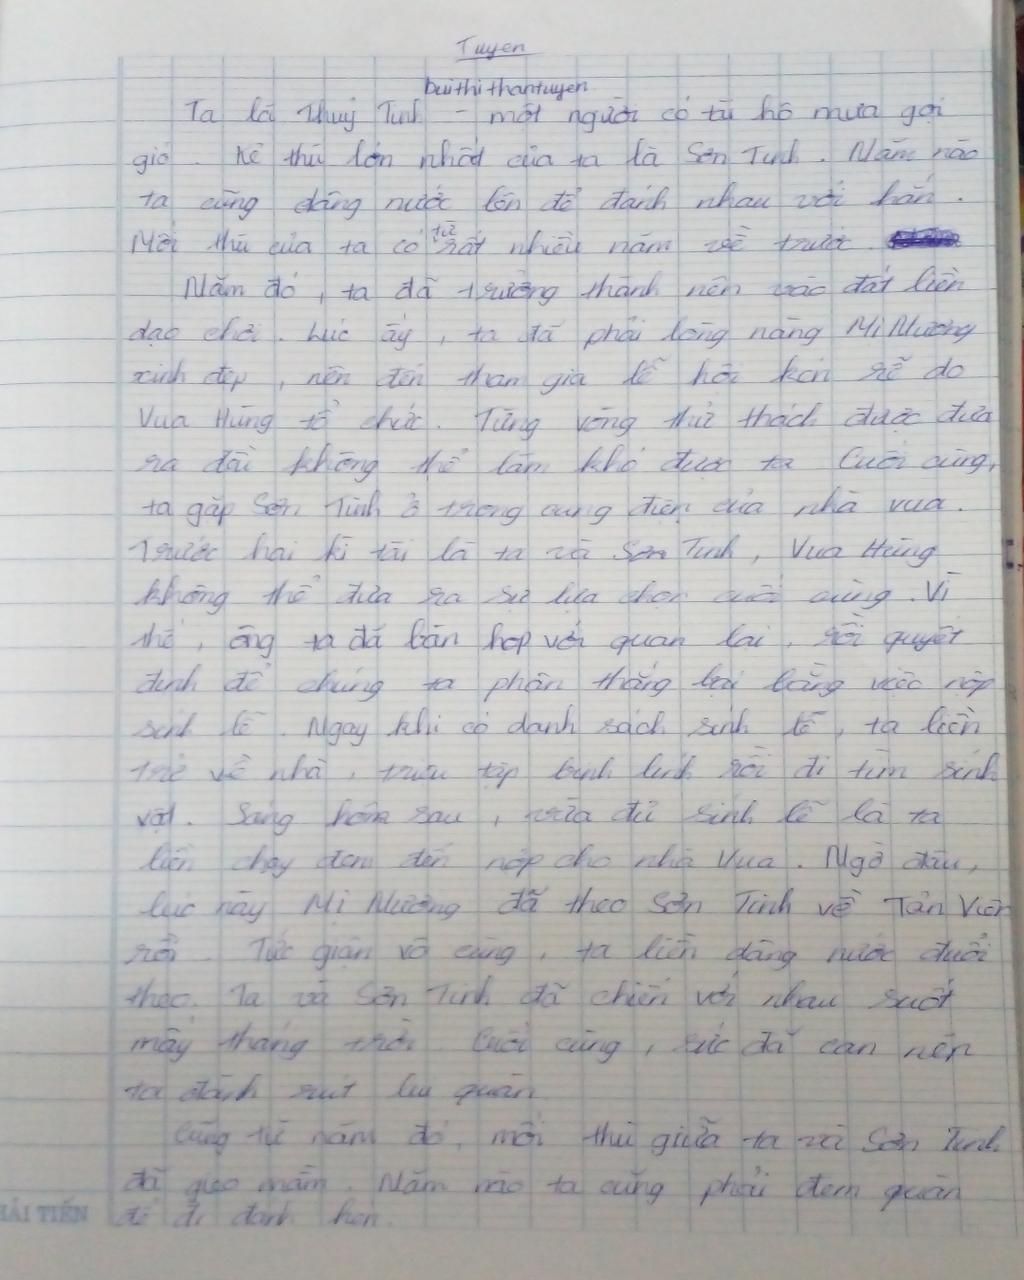 Tuyen
buithithantuyen
Ta là Thuỷ Tinh - một người có tài hô mưa gọi
gió. Kẻ thù lớn nhất của ta là Sơn Tinh. Năm nào
ta cũng dâng nước lên để đánh nhau với hắn.
Mối thù của ta có từ rất nhiều năm về trước.
Năm đó, ta đã trưởng thành nên vào đất liền
dạo chơi. Lúc ấy, ta đã phải lòng nàng Mị Nương
xinh đẹp, nên đến tham gia lễ hội kén rể do
Vua Hùng tổ chức. Từng vòng thử thách được đưa
ra đều không thể làm khó được ta. Cuối cùng,
ta gặp Sơn Tinh ở trong cung điện của nhà vua.
Trước hai kì tài là ta và Sơn Tinh, Vua Hùng
không thể đưa ra sự lựa chọn cuối cùng. Vì
thế, ông ta đã bàn họp với quan lại, rồi quyết
định để chúng ta phân thắng bại bằng việc nộp
sính lễ. Ngay khi có danh sách sính lễ, ta liền
trở về nhà, triệu tập binh lính rồi đi tìm sính
vật. Sáng hôm sau, vừa đủ sính lễ là ta
liền chạy đem đến nộp cho nhà Vua. Ngờ đâu,
lúc này Mị Nương đã theo Sơn Tinh về Tản Viên
rồi. Tức giận vô cùng, ta liền dâng nước đuổi
theo. Ta và Sơn Tinh đã chiến với nhau suốt
mấy tháng trời. Cuối cùng, sức đã cạn nên
ta đành rút lui quân.
Cũng từ năm đó, mối thù giữa ta và Sơn Tinh
đã gieo mầm. Năm nào ta cũng phải đem quân
để đi đánh hắn.
HẢI TIẾN